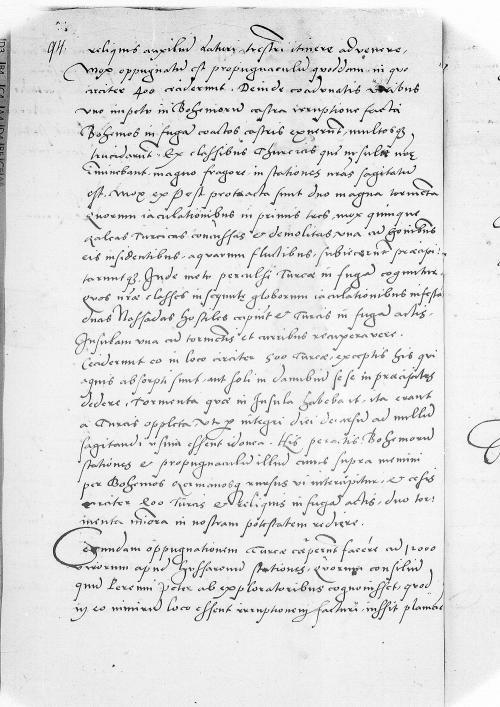 94.
reliquis auxiliu laturi, trestri itinere advenere,
Mox oppugnatu est propugnaculu quoddam, in quo
circiter 400 ceciderunt. Deinde coadunatis viribus
uno impetu in Bohemorum castra irruptione facta
Bohemos in fuga coactos castris exuerunt, multosq3
trucidarunt. Ex classibus Thurcicis que insule
iminebant, magno fragore in stationes nras sagitatu
est. Mox ex Pest protracta sunt duo magna tormenta
Quorum iaculationibus in primis tres, mox quinque
galeas Turcicas concussas et demolitas una cu hominibus
eis insidentibus, aquarum fluctibus, subiecerunt
Inde metu perculsi Turcae in fuga
quos nrae classes insequute globorum iaculationibus infesta
duas Nassadas hostiles coepint et Turcis in fuga actis,
Insulam una cu tormentis et curribus recuperavere.
Ceciderunt eo in loco circiter 500 Turcae, exceptis his qui
aquis absorpti sunt, aut soli in danubiu sese in praecipites
dedere. Tormenta quae in Insula habebant, ita erant
a Turcis oppleta ut p integri diei decursu ad nullu
sagitandi usum essent idonea. His peractis Bohemorum
stationes et propugnaculu illud cuius supra memini
per Bohemos Germanosq3 rursus vi intercipitur, et cesis
circiter 800 Turcis et Reliquis in fuga actis, duo tor-
menta in nostram potestatem rediere.
Secundam oppugnationem Turcae caeperunt facere ad 12000
virorum apud Hussarorum stationes, Quorum consiliu
quu Peremi Peter ab exploratoribus cognovisset, quod
eo nimiru loco essent irruptionem facturi, iussit